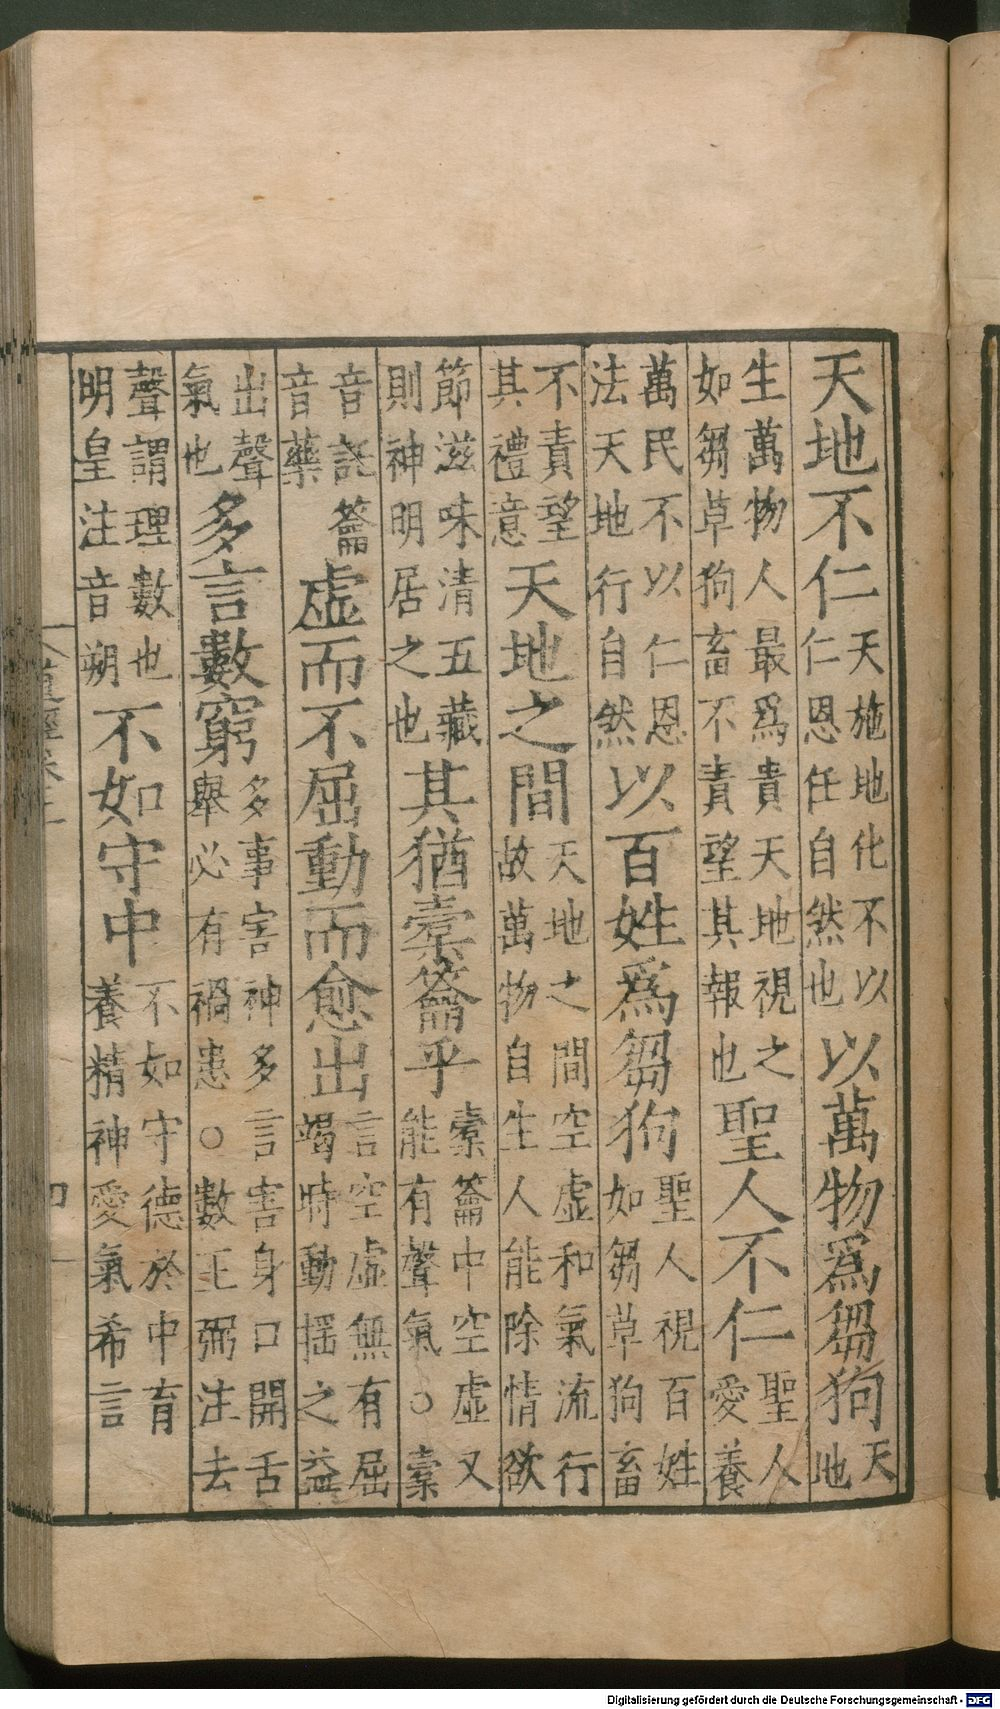 天地不仁天施地化不以仁恩任自然也以萬物爲芻狗天地
生萬物人最爲貴天地視之如芻草狗畜不責望其報也聖人不仁聖人愛養
萬民不以仁恩法天地行自然以百姓爲芻狗聖人視百姓如芻草狗畜
不責望其禮意天地之間天地之間空虛和氣流行故萬物自生人能除情欲
節滋味清五藏則神明居之也其猶橐籥乎橐籥中空虛又能有聲氣○橐
音託籥音藥虛而不屈動而愈出言空虛無有屈竭時動揺之益
出聲氣也多言數窮多事害神多言害身口開舌舉必有禍患○數王弼注去
聲謂理數也明皇注音朔不如守中不如守德於中育養精神愛氣希言
Digitalisierung gefördert durch die Deutsche Forschungsgemeinschaft - DFG